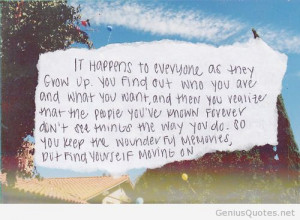 IT HAPPENS TO EVERYONE AS THEY
GROW UP. YOU FIND OUT WHO YOU ARE
AND WHAT YOU WANT, AND THEN YOU REALIZE
THAT THE PEOPLE YOU'VE KNOWN FOREVER
DON'T SEE THINGS THE WAY YOU DO. SO
YOU KEEP THE WOUNDERFUL MEMORIES,
BUT FIND YOURSELF MOVING ON
GeniusQuotes.net